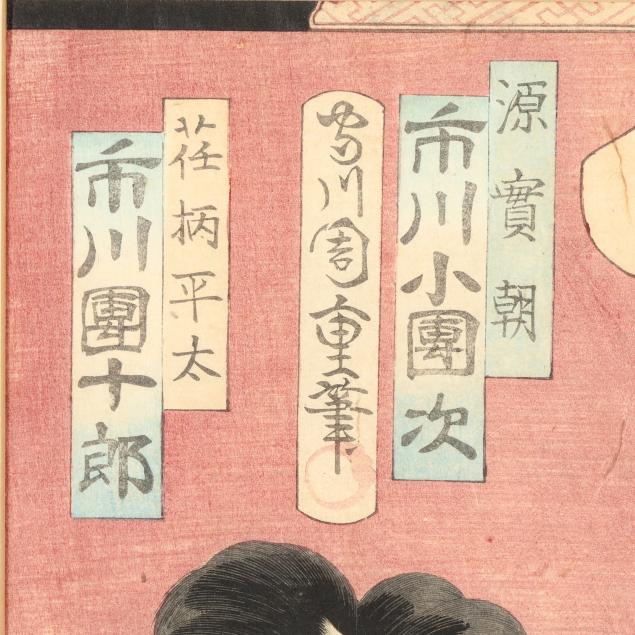 源實朝
市川小團次
守川周重筆
荏柄平太
市川團十郎